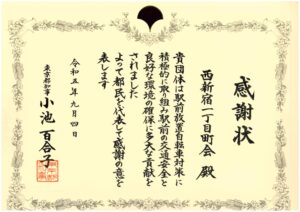 感謝状
西新宿一丁目町会 殿
貴団体は駅前放置自転車対策に
積極的に取り組み駅前の交通安全と
良好な環境の確保に多大な貢献を
されました
よって都民を代表して感謝の意を
表します
令和五年九月四日
東京都知事 小池百合子